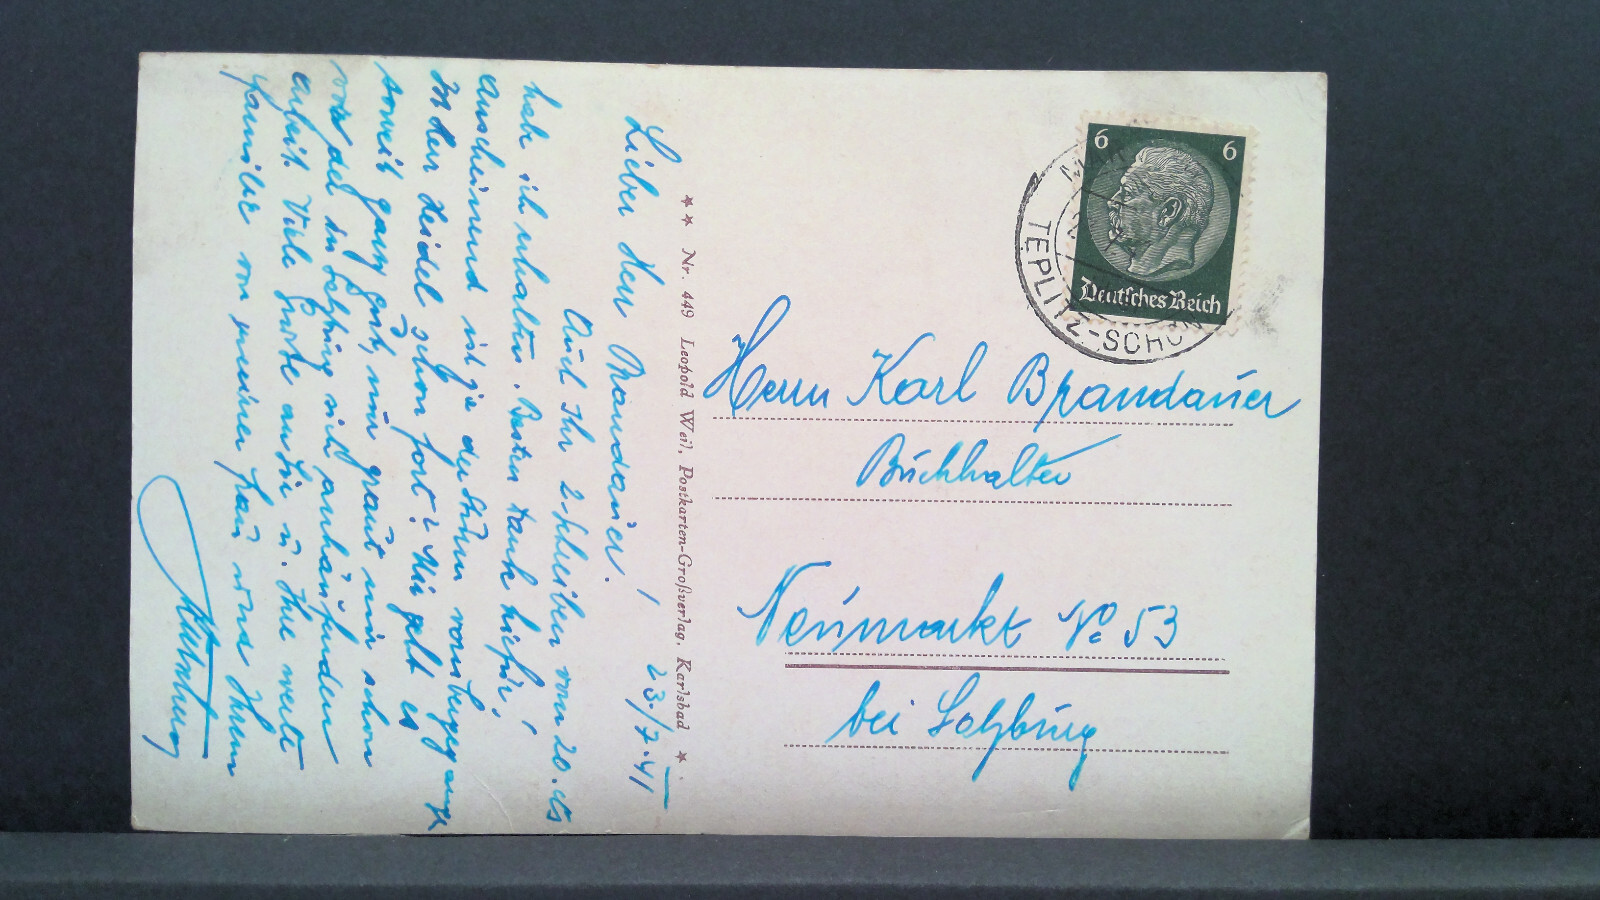 23./7.41
Lieber Herr Brandauer!
Auch Ihr 2. Schreiben vom 20. ds
habe ich erhalten. Besten Dank hiefür,
anscheinend ist ja der Sturm vorübergegangen
Ist Herr Heidel schon fort? Mir geht es
soweit ganz gut, nur graut mir schon
vor der in Leipzig sich anhäufenden
arbeit. Viele Grüße an Sie u. Ihre werte
Familie von meiner Frau und Ihrem
** Nr. 449 Leopold Weil, Postkarten-Großverlag, Karlsbad *
6 6
Deutsches Reich
TEPLITZ-SCHÖN
Herrn Karl Brandauer
Buchhalter
Neumarkt No 53
bei Salzburg